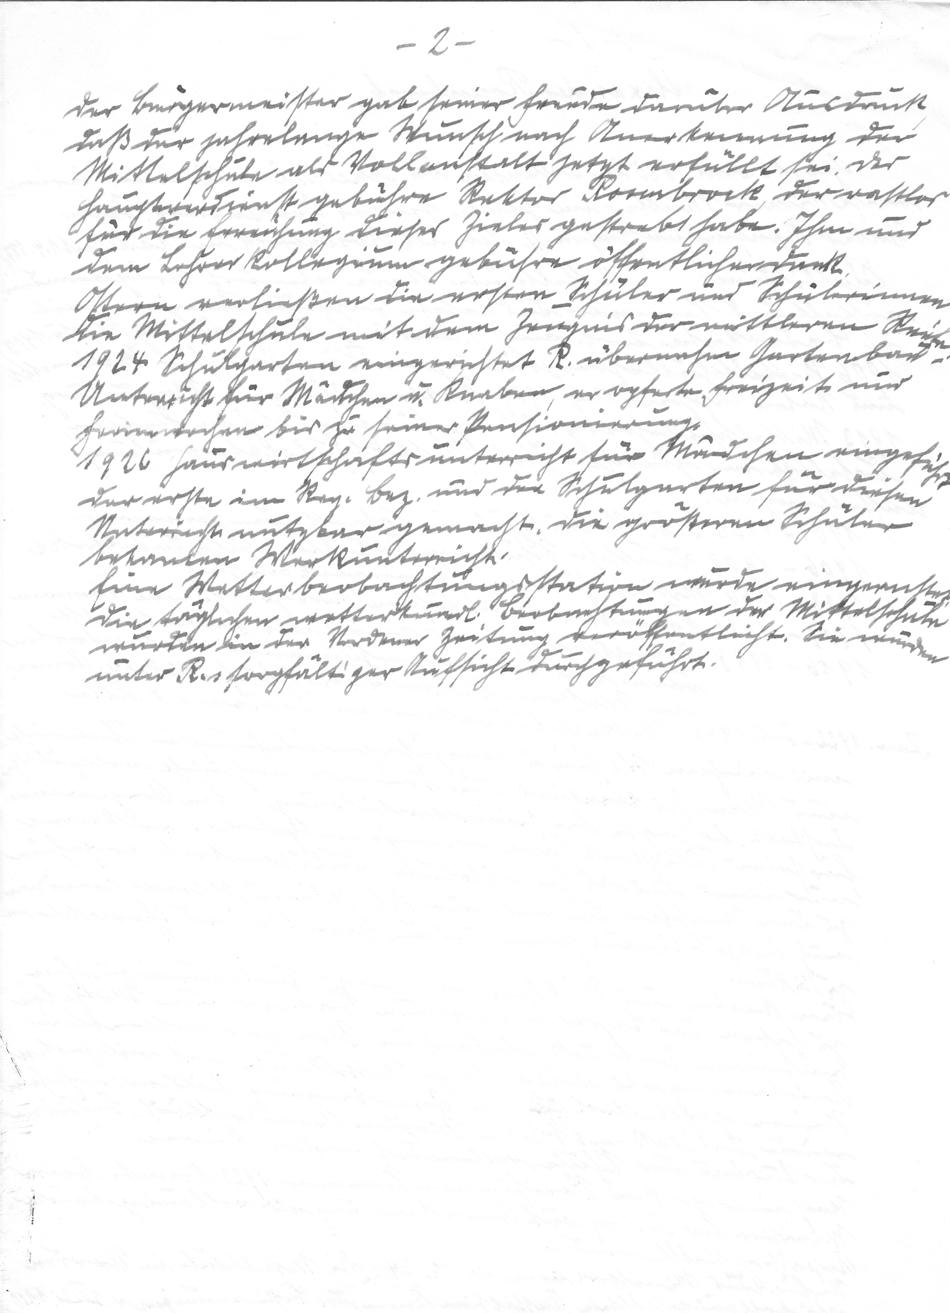 - 2 -
der Bürgermeister gab seiner Freude darüber Ausdruck,
daß der jahrelange Wunsch nach Anerkennung der
Mittelschule als Vollanstalt jetzt erfüllt sei. Das
Hauptverdienst gebühre Rektor Roombrock, der rastlos
für die Erreichung dieses Zieles gestrebt habe. Ihm und
dem Lehrer Kollegium gebühre öffentlicher Dank.
Ostern verließen die ersten Schüler und Schülerinnen
die Mittelschule mit dem Zeugnis der mittleren Reife.
1924 Schulgarten eingerichtet R. übernahm Gartenbau-
Unterricht für Mädchen u. Knaben, er opferte Freizeit und
Ferienwochen bis zu seiner Pensionierung.
1926 Hauswirtschaftsunterricht für Mädchen eingeführt
der erste im Reg. bez. und der Schulgarten für diesen
Unterricht nutzbar gemacht. Die größeren Schüler
bekamen Werkunterricht.
Eine Wetterbeobachtungsstation wurde eingerichtet
die täglichen wetterkundl. Beobachtungen der Mittelschule
wurden in der Nordener Zeitung veröffentlicht. Sie wurden
unter R.s sorgfältiger Aufsicht durchgeführt.